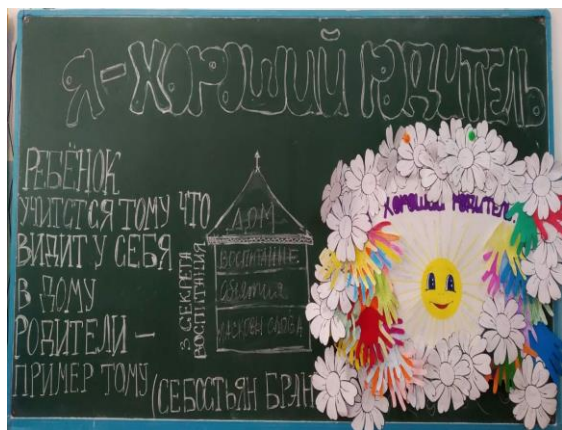 Я-ХОРОШИЙ РОДИТЕЛЬ
РЕБЁНОК
УЧИТСТЯ ТОМУ ЧТО
ВИДИТ У СЕБЯ
В ДОМУ
РОДИТЕЛИ –
ПРИМЕР ТОМУ
(СЕБОСТЬЯН БРАН
3 СЕКРЕТА
ВОСПИТАНИЯ
ДОМ
ВОСПИТАНИЕ
События
ХОРОШИЙ РОДИТЕЛ